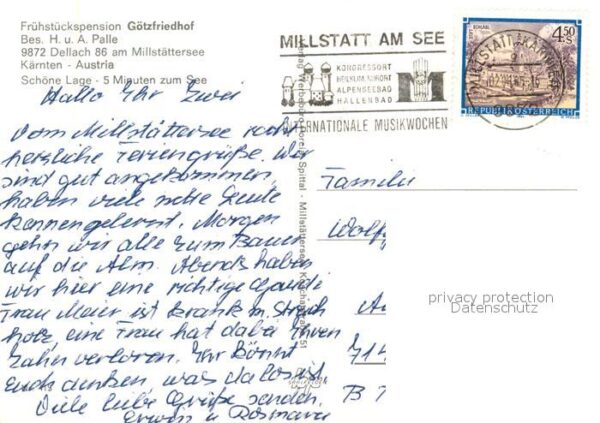 Frühstückspension Götzfriedhof
Bes. H. u. A. Palle
9872 Dellach 86 am Millstättersee
Kärnten - Austria
Schöne Lage - 5 Minuten zum See
Hallo Ihr Zwei
Vom Millstättersee recht
herzliche Feriengrüße. Wir
sind gut angekommen,
haben viele nette Leute
kennengelernt. Morgen
gehn wir alle zum Bauer
auf die Alm. Abends haben
wir hier eine richtige Gaude
Frau Meier ist krank m. Streich
holz, eine Frau hat dabei ihren
Zahn verloren. Ihr könnt
Euch denken, was da los ist
Viele liebe Grüße senden.
Erwin u Rosmarie
MILLSTATT AM SEE
KONGRESSORT
HEILKLIMKURORT
ALPENSEEBAD
HALLENBAD
INTERNATIONALE MUSIKWOCHEN
STIFT VORAU
4.50 S
REPUBLIK ÖSTERREICH
Familie
Wolf
714
B
privacy protection
Datenschutz